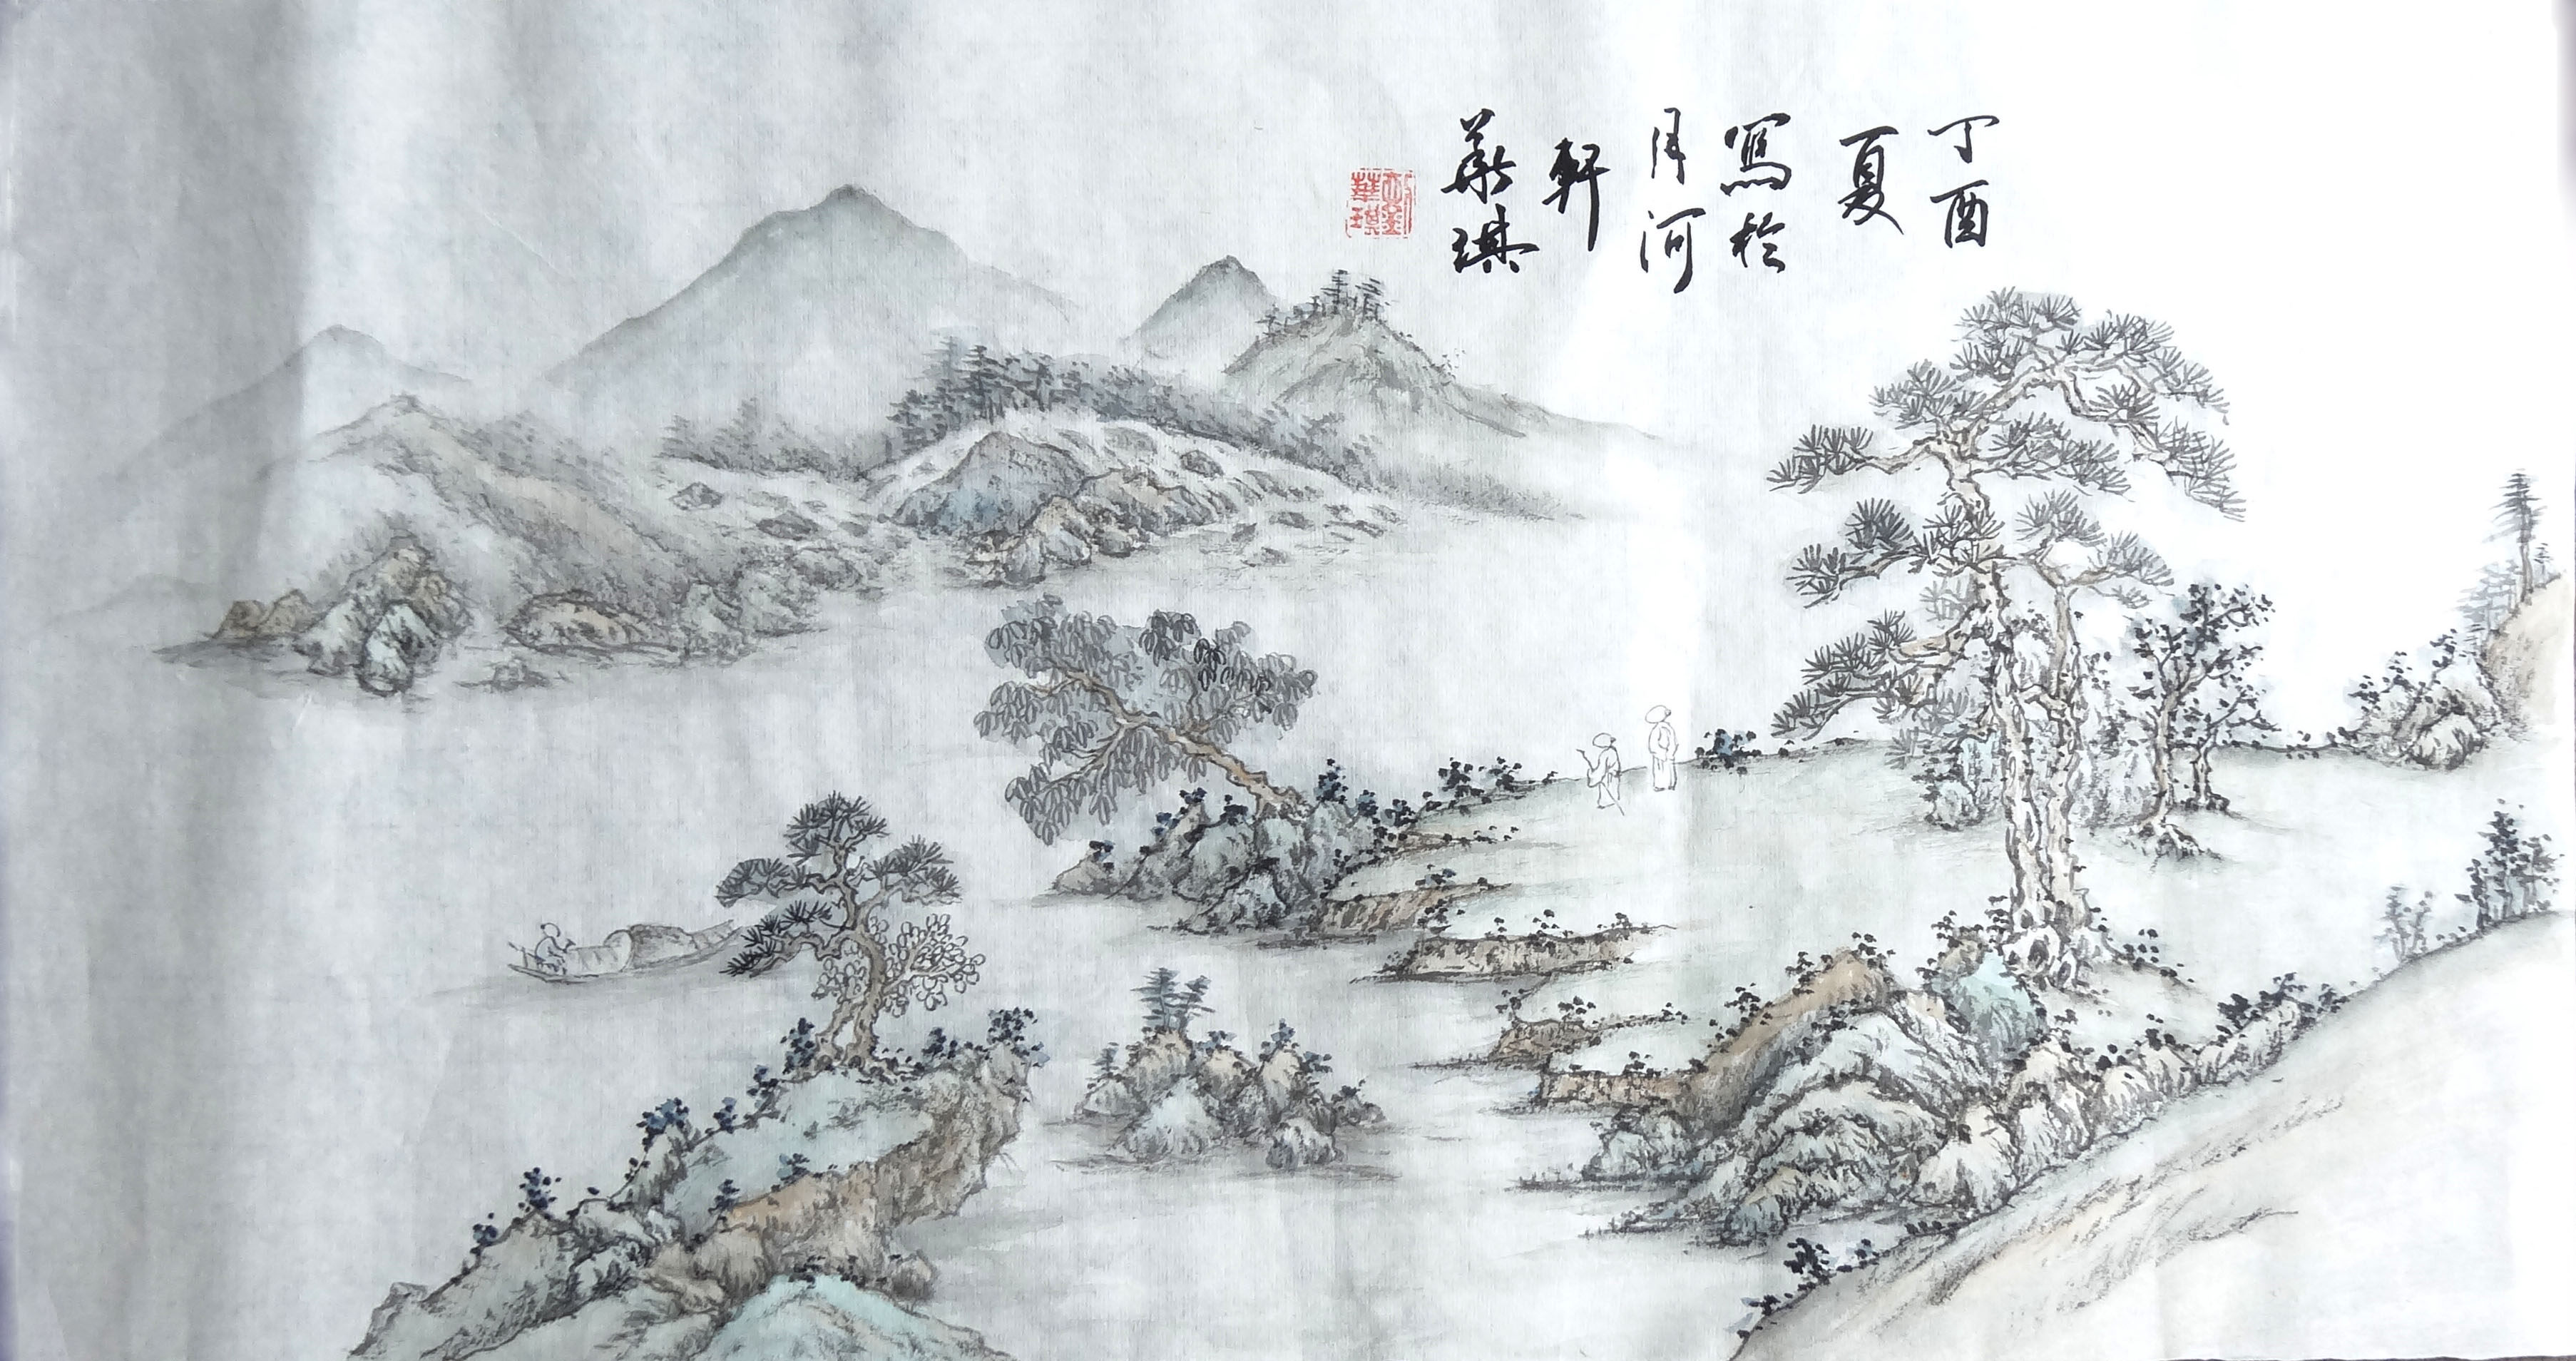 丁酉
夏
寫於
月河
軒
華琪
劉
華琪